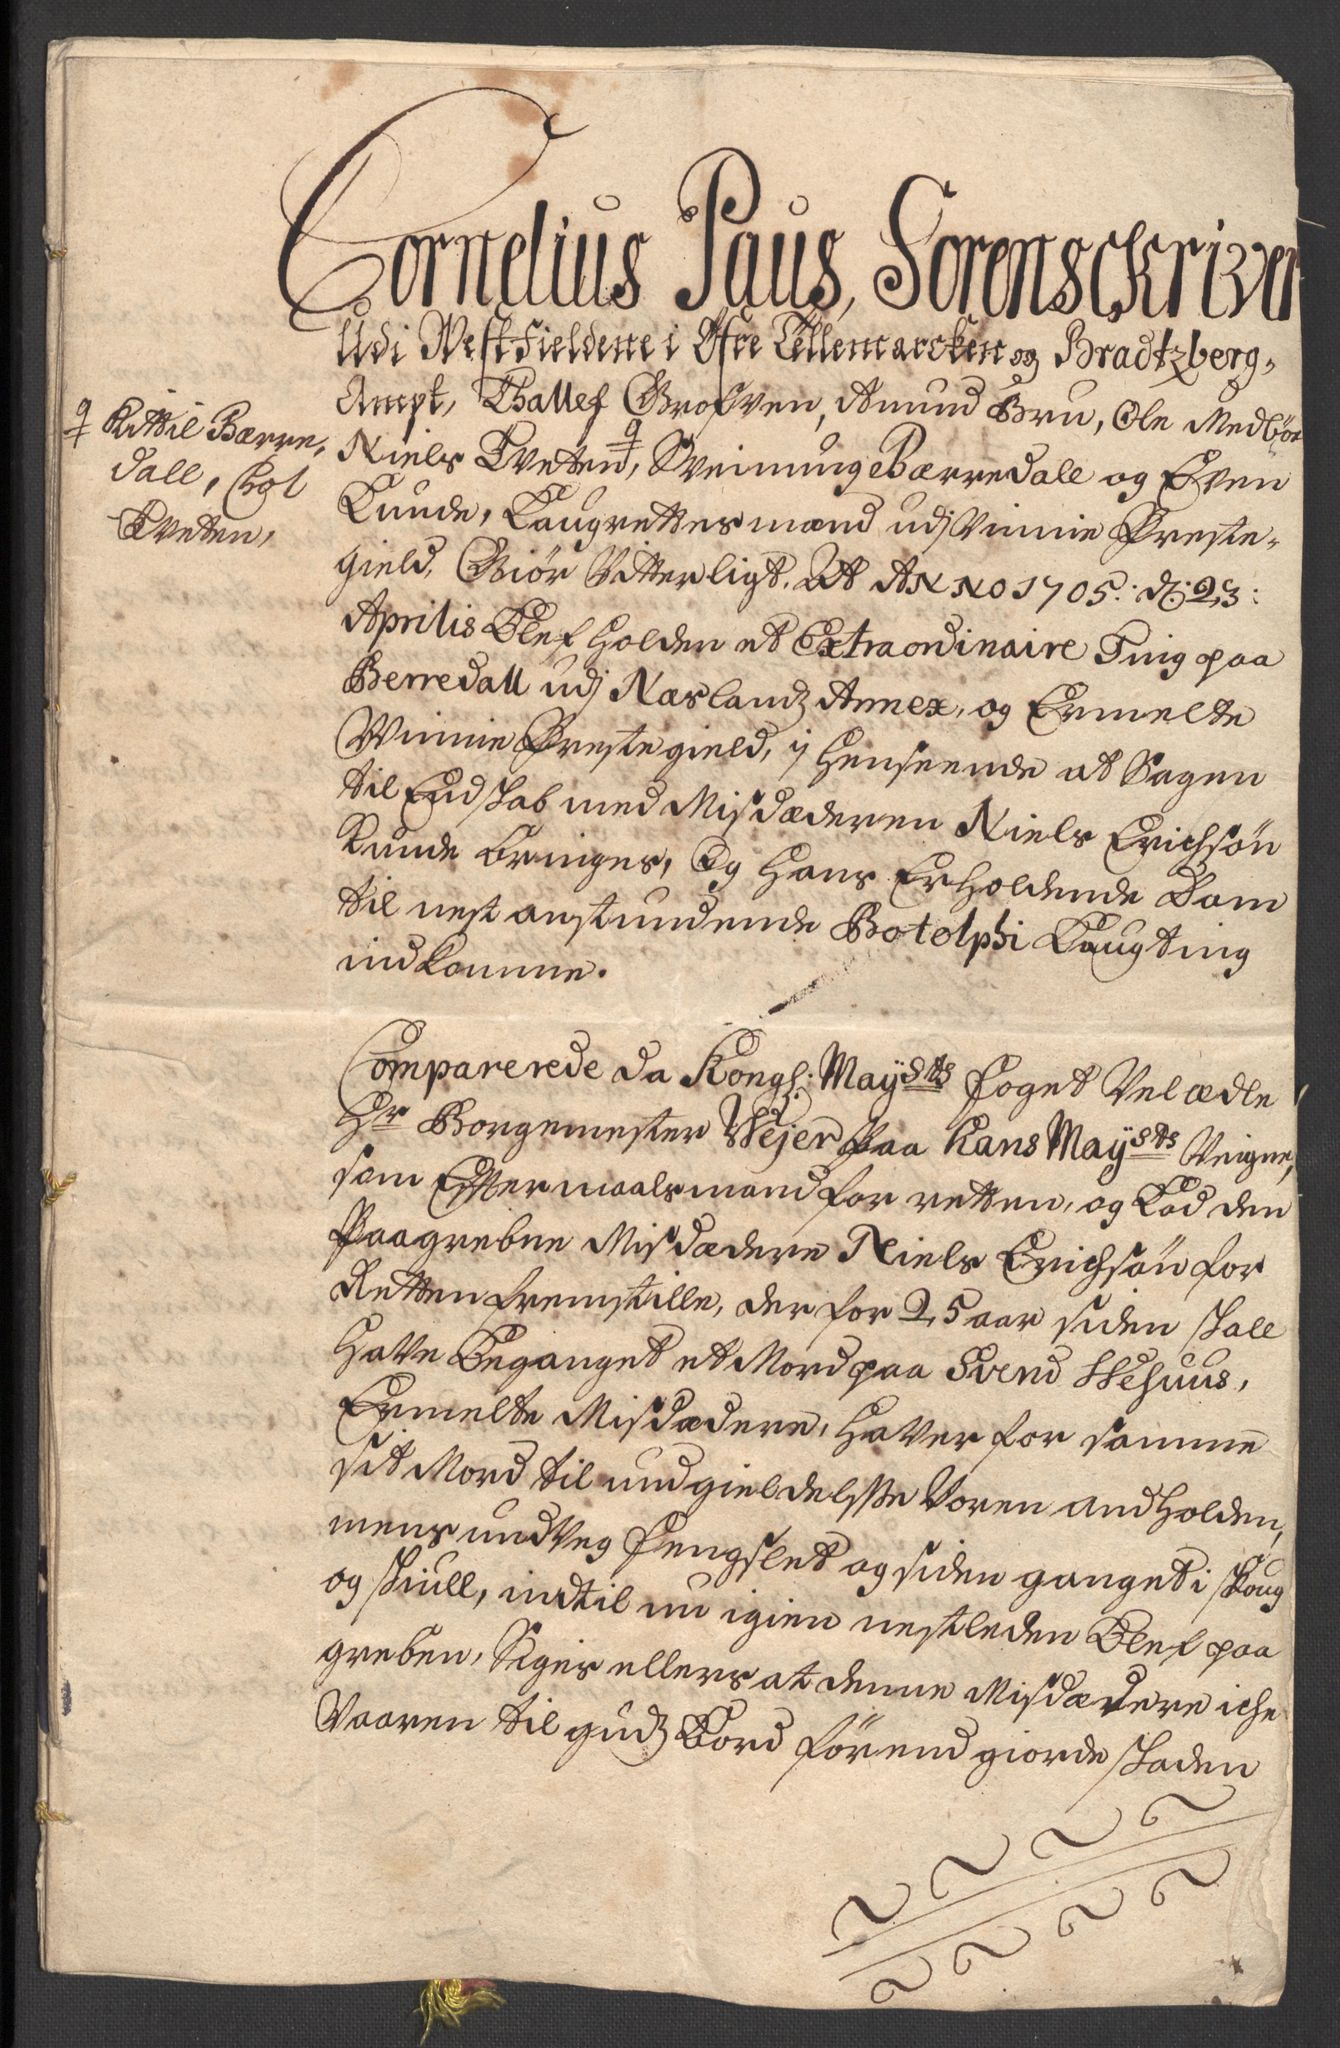 Cornelius Paus, Sorenschriver
Udi Westfieldene i Øfre Tellemarcken og Bradtzberg-
Ampt, Thallef Grofven, Amund Bru, Ole Medbøe
Niels Tveten, Sveinung Bærredall og Even
Lunde, Laugrettesmænd udj Vinnie Præste-
gield, Giør Vitterligt. At ANNO 1705: d: 23:
Aprilis Blef holden et Extraordinaire Ting paa
Berredall udj Næslandz Annex, og Ermelte
Winnie Præstegield, i henseende at Sagen
til Endskab med Misdæderen Niels Erichsøn
Kunde bringes, Og hans Erholdende Dom
til nest anstundende Botolphi Laugting
indkomme.
q Kittil Bærre,
dall, Hol
Tveten,
Comparerede da Kongl: Mayᵗˢ foget Velædle
Hr Borgemester Weyer paa Hans Mayᵗˢ Veigne,
som Efftermaalsmand for retten, og Lod den
Paagrebne Misdædere Niels Erichsøn for
Retten fremstille, der for 25 aar siden skall
have Beganget et Mord paa Svend Wehuus,
Ermelte Misdædere, haver for samme
sit Mord til undgieldelsse Voren andholden,
mens undveg fengslet og siden ganget i skoug
og skiull, indtil nu igien nestleden Blef paa
greben, Siges ellers at denne Misdædere iche
Vaaren til gudz Bord førend giorde skaden